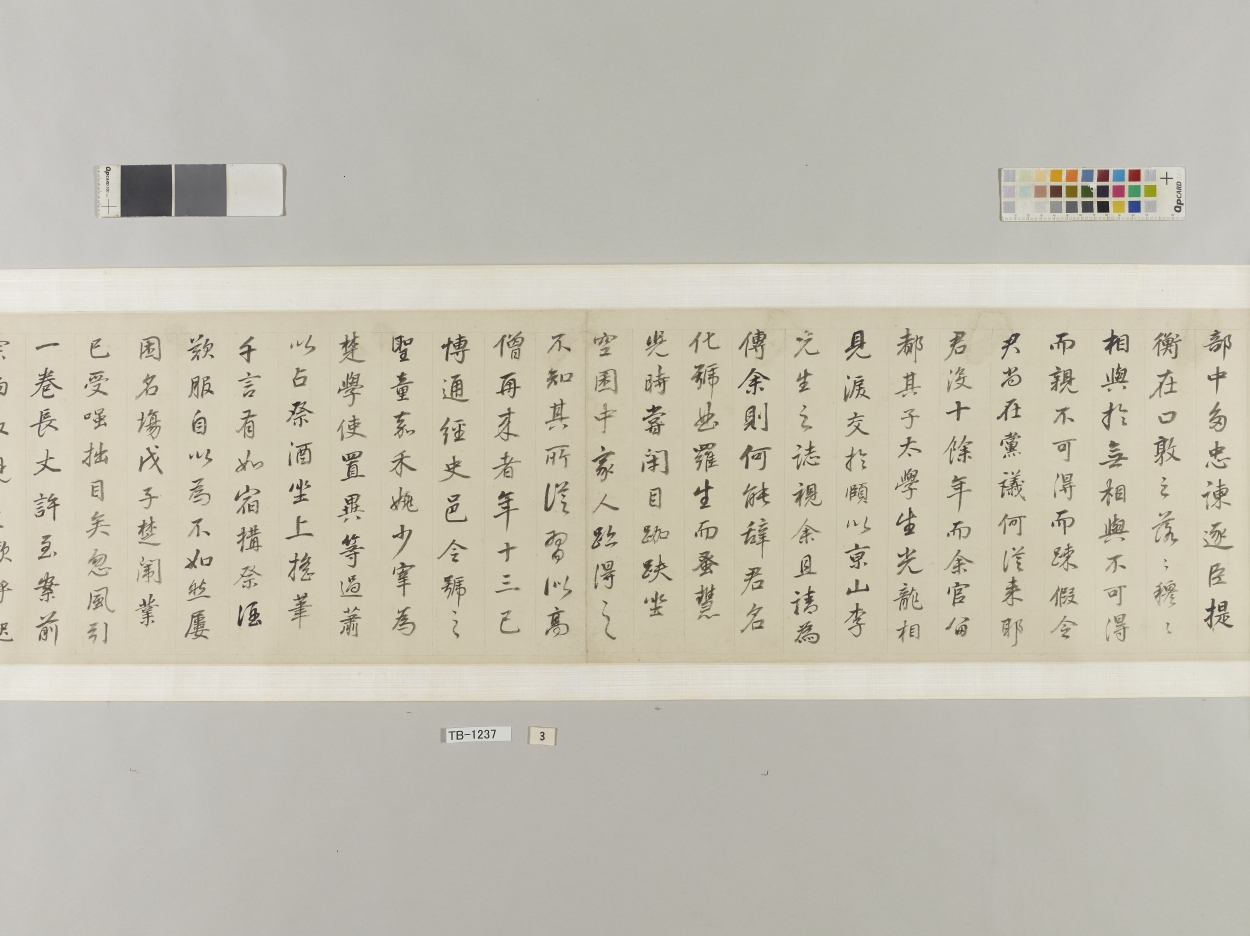 部中多忠諫逐臣提
衡在口敦之落〻穆〻
相與於無相與不可得
而親不可得而踈假令
君尚在黨議何從来耶
君沒十餘年而余官留
都其子太學生光龍相
見淚交於頤以京山李
先生之誌視余且請為
傳余則何能辭君名
化號曲羅生而蚤慧
時嘗閉目跏趺坐
空囷中家人跡得之
不知其所從習似高
僧再来者年十三已
博通經史邑令號之
聖童嘉禾姚少宰為
楚學使置異等過蕭
以占祭酒坐上搖筆
千言有如宿搆祭酒
歎服自以為不如然屢
困名場戊子楚闈業
已受嗤拙目矣忽風引
一卷長丈許至案前
TB-1237
3
QPCARD
QPCARD